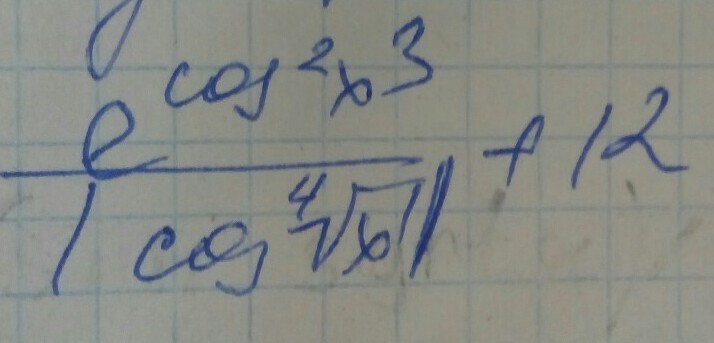 e^{cos²x³}
/ |cos ⁴√x| + 12